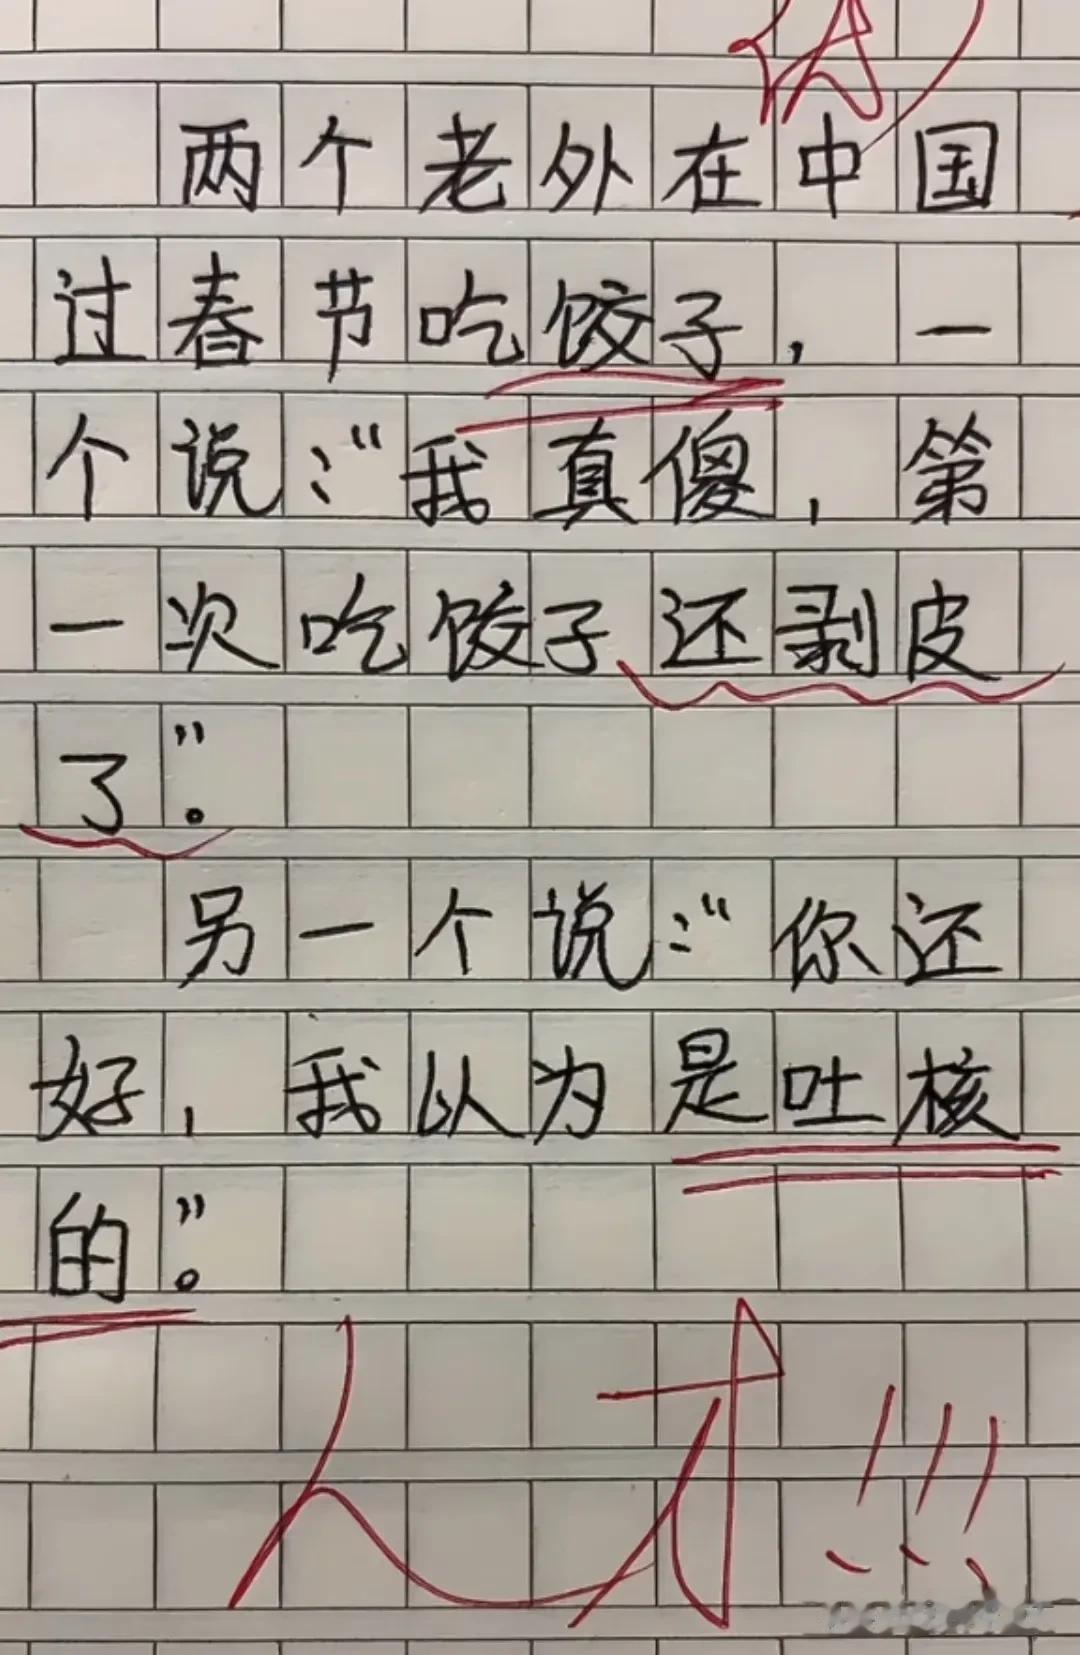 两个老外在中国
过春节吃饺子，一
个说："我真傻，第
一次吃饺子还剥皮
了"。
另一个说："你还
好，我以为是吐核
的"。
人才!!!